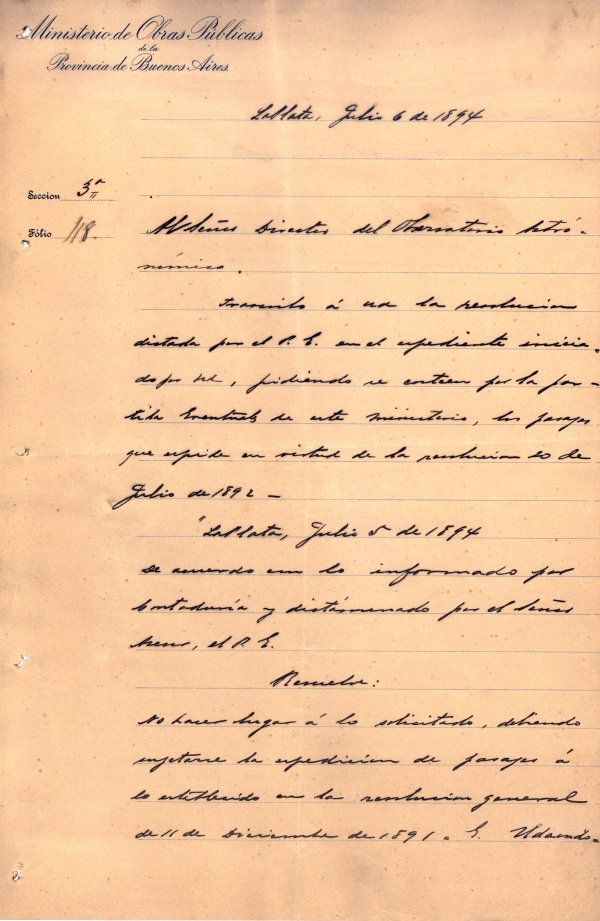 Ministerio de Obras Públicas
de la
Provincia de Buenos Aires
La Plata, Julio 6 de 1894
Seccion 3ª
Fólio 118
Al Señor Director del Observatorio Astró-
nómico.
Transcribo á Ud la resolucion
dictada por el P. E. en el expediente inicia-
do por Ud, pidiendo se costeen por la par-
tida Eventuales de este Ministerio, los pasajes
que expide en virtud de la resolucion 20 de
Julio de 1892 -
"La Plata, Julio 5 de 1894
De acuerdo con lo informado por
Contaduría y dictáminado por el Señor
Asesor, el P. E.
Resuelve:
No hacer lugar á lo solicitado, debiendo
sujetarse la expedicion de pasajes á
lo establecido en la resolucion general
de 11 de Diciembre de 1891. G. Udaondo-